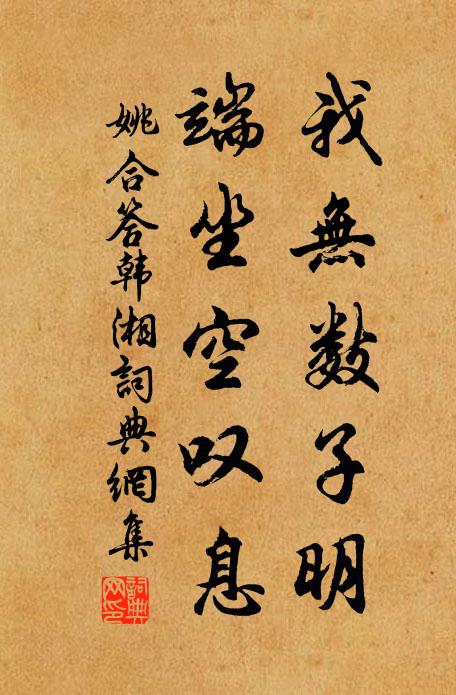 我無数子明
端坐空叹息
姚合答韩湘詞典網集
詞典網印